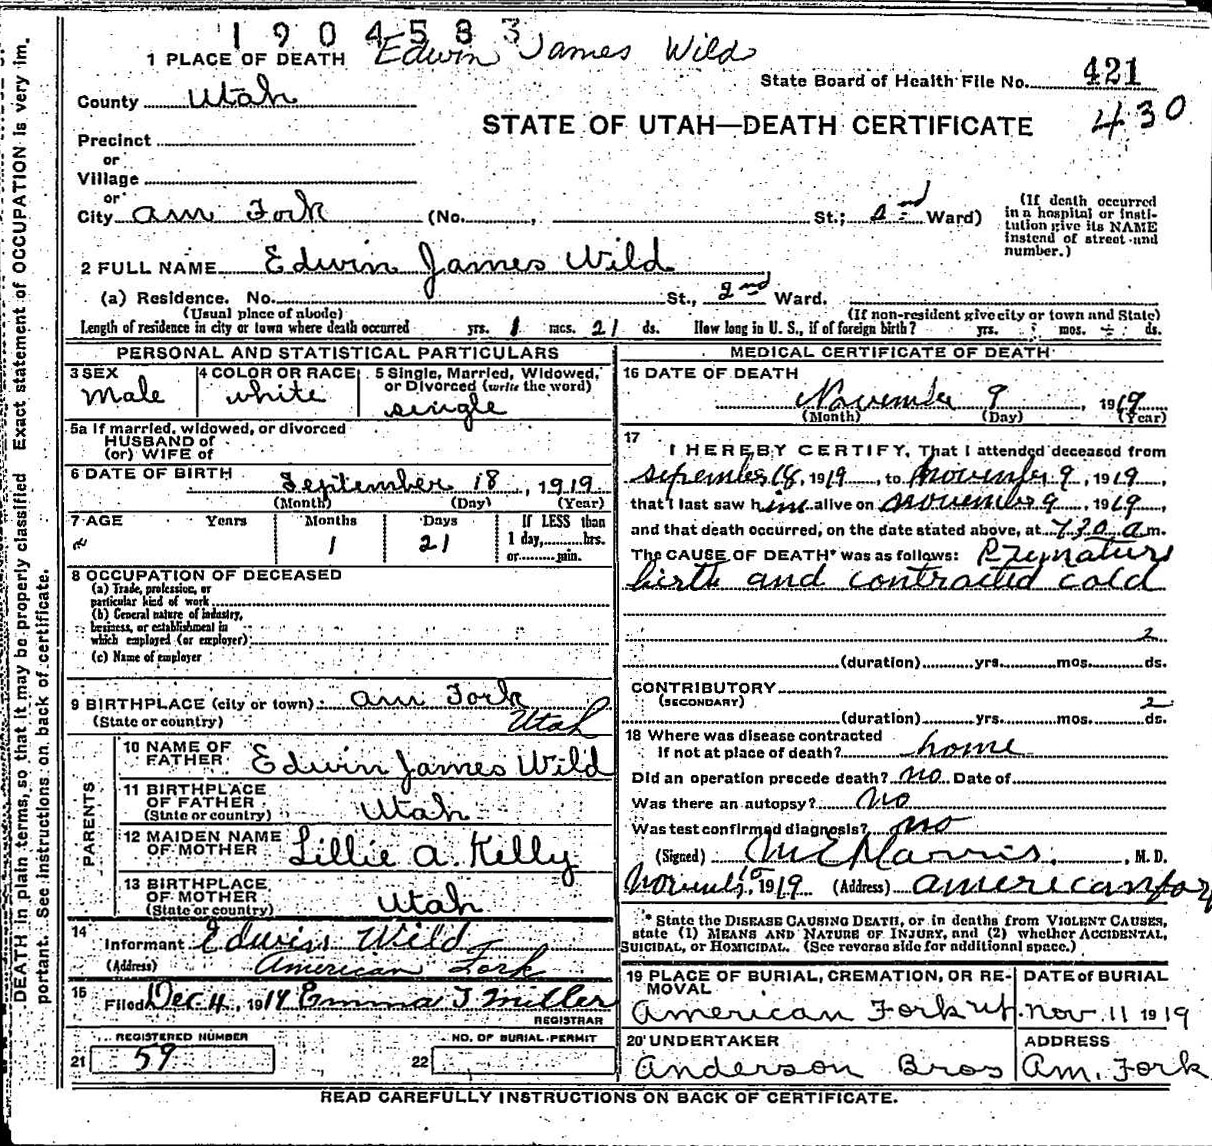 1904583
Edwin James Wild
1 PLACE OF DEATH
State Board of Health File No. 421
430
County Utah
STATE OF UTAH—DEATH CERTIFICATE
Precinct
or
Village
or
City Am Fork (No. , St.; 2nd Ward)
(If death occurred in a hospital or insti-
tution give its NAME
instead of street and
number.)
2 FULL NAME Edwin James Wild
(a) Residence. No. St., 2nd Ward.
(Usual place of abode) (If non-resident give city or town and State)
Length of residence in city or town where death occurred yrs. 1 mos. 21 ds. How long in U. S., if of foreign birth? yrs. mos. ds.
PERSONAL AND STATISTICAL PARTICULARS
3 SEX
Male
4 COLOR OR RACE
white
5 Single, Married, Widowed,
or Divorced (write the word)
single
5a If married, widowed, or divorced
HUSBAND of
(or) WIFE of
6 DATE OF BIRTH
September 18, 1919
(Month) (Day) (Year)
7 AGE Years Months Days If LESS than
1 day, hrs.
or min.
1 21
8 OCCUPATION OF DECEASED
(a) Trade, profession, or
particular kind of work
(b) General nature of industry,
business, or establishment in
which employed (or employer)
(c) Name of employer
9 BIRTHPLACE (city or town) Am Fork
(State or country) Utah
PARENTS
10 NAME OF
FATHER Edwin James Wild
11 BIRTHPLACE
OF FATHER
(State or country) Utah
12 MAIDEN NAME
OF MOTHER Lillie A. Kelly
13 BIRTHPLACE
OF MOTHER
(State or country) Utah
14
Informant Edwin Wild
(Address) American Fork
15
Filed Dec 4, 1919 Emma J Miller
REGISTRAR
REGISTERED NUMBER NO. OF BURIAL PERMIT
21 59 22
MEDICAL CERTIFICATE OF DEATH
16 DATE OF DEATH
November 9, 1919
(Month) (Day) (Year)
17
I HEREBY CERTIFY, That I attended deceased from
September 18, 1919, to November 9, 1919,
that I last saw him alive on November 9, 1919,
and that death occurred, on the date stated above, at 730 a m.
The CAUSE OF DEATH* was as follows: Premature
birth and contracted cold
2
(duration) yrs. mos. ds.
CONTRIBUTORY
(SECONDARY) 2
(duration) yrs. mos. ds.
18 Where was disease contracted
If not at place of death? home
Did an operation precede death? no Date of
Was there an autopsy? No
Was test confirmed diagnosis? no
(Signed) M E Harris, M. D.
1919 (Address) American Fork
* State the DISEASE CAUSING DEATH, or in deaths from VIOLENT CAUSES,
state (1) MEANS AND NATURE OF INJURY, and (2) whether ACCIDENTAL,
SUICIDAL, or HOMICIDAL. (See reverse side for additional space.)
19 PLACE OF BURIAL, CREMATION, OR RE-
MOVAL
American Fork Ut.
DATE of BURIAL
Nov. 11 1919
20 UNDERTAKER
Anderson Bros
ADDRESS
Am. Fork
READ CAREFULLY INSTRUCTIONS ON BACK OF CERTIFICATE.
DEATH in plain terms, so that it may be properly classified Exact statement of OCCUPATION is very im.
portant. See instructions on back of certificate.